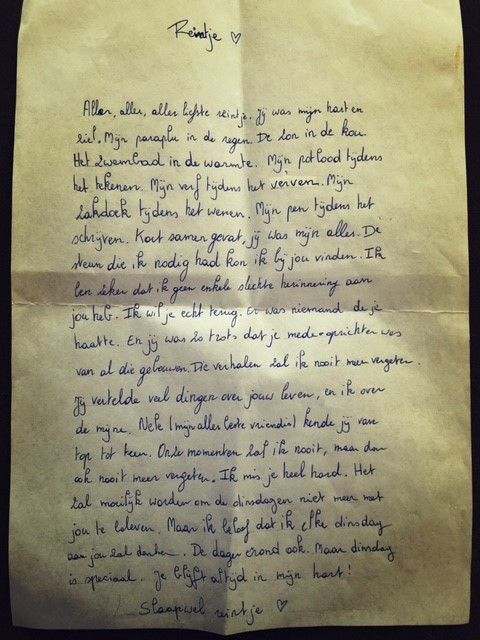 Reintje ♡
Aller, aller, aller liefste reintje. Jij was mijn hart en
ziel. Mijn paraplu in de regen. De zon in de kou.
Het zwembad in de warmte. Mijn potlood tijdens
het tekenen. Mijn verf tijdens het verven. Mijn
zakdoek tijdens het wenen. Mijn pen tijdens het
schrijven. Kort samen gevat, jij was mijn alles. De
steun die ik nodig had kon ik bij jou vinden. Ik
ben zeker dat ik geen enkele slechte herinnering aan
jou heb. Ik wil je echt terug. Er was niemand die je
haatte. En jij was zo trots dat je mede-oprichter was
van al die gebouwen. Die verhalen zal ik nooit meer vergeten.
Jij vertelde veel dingen over jouw leven, en ik over
de mijne. Nele (mijn aller beste vriendin) kende jij van
top tot teen. Onze momenten zal ik nooit, maar dan
ook nooit meer vergeten. Ik mis je heel hard. Het
zal moeilijk worden om de dinsdagen niet meer met
jou te beleven. Maar ik beloof dat ik elke dinsdag
aan jou zal denken. De dagen erond ook. Maar dinsdag
is speciaal. Je blijft altijd in mijn hart!
Slaapwel reintje ♡